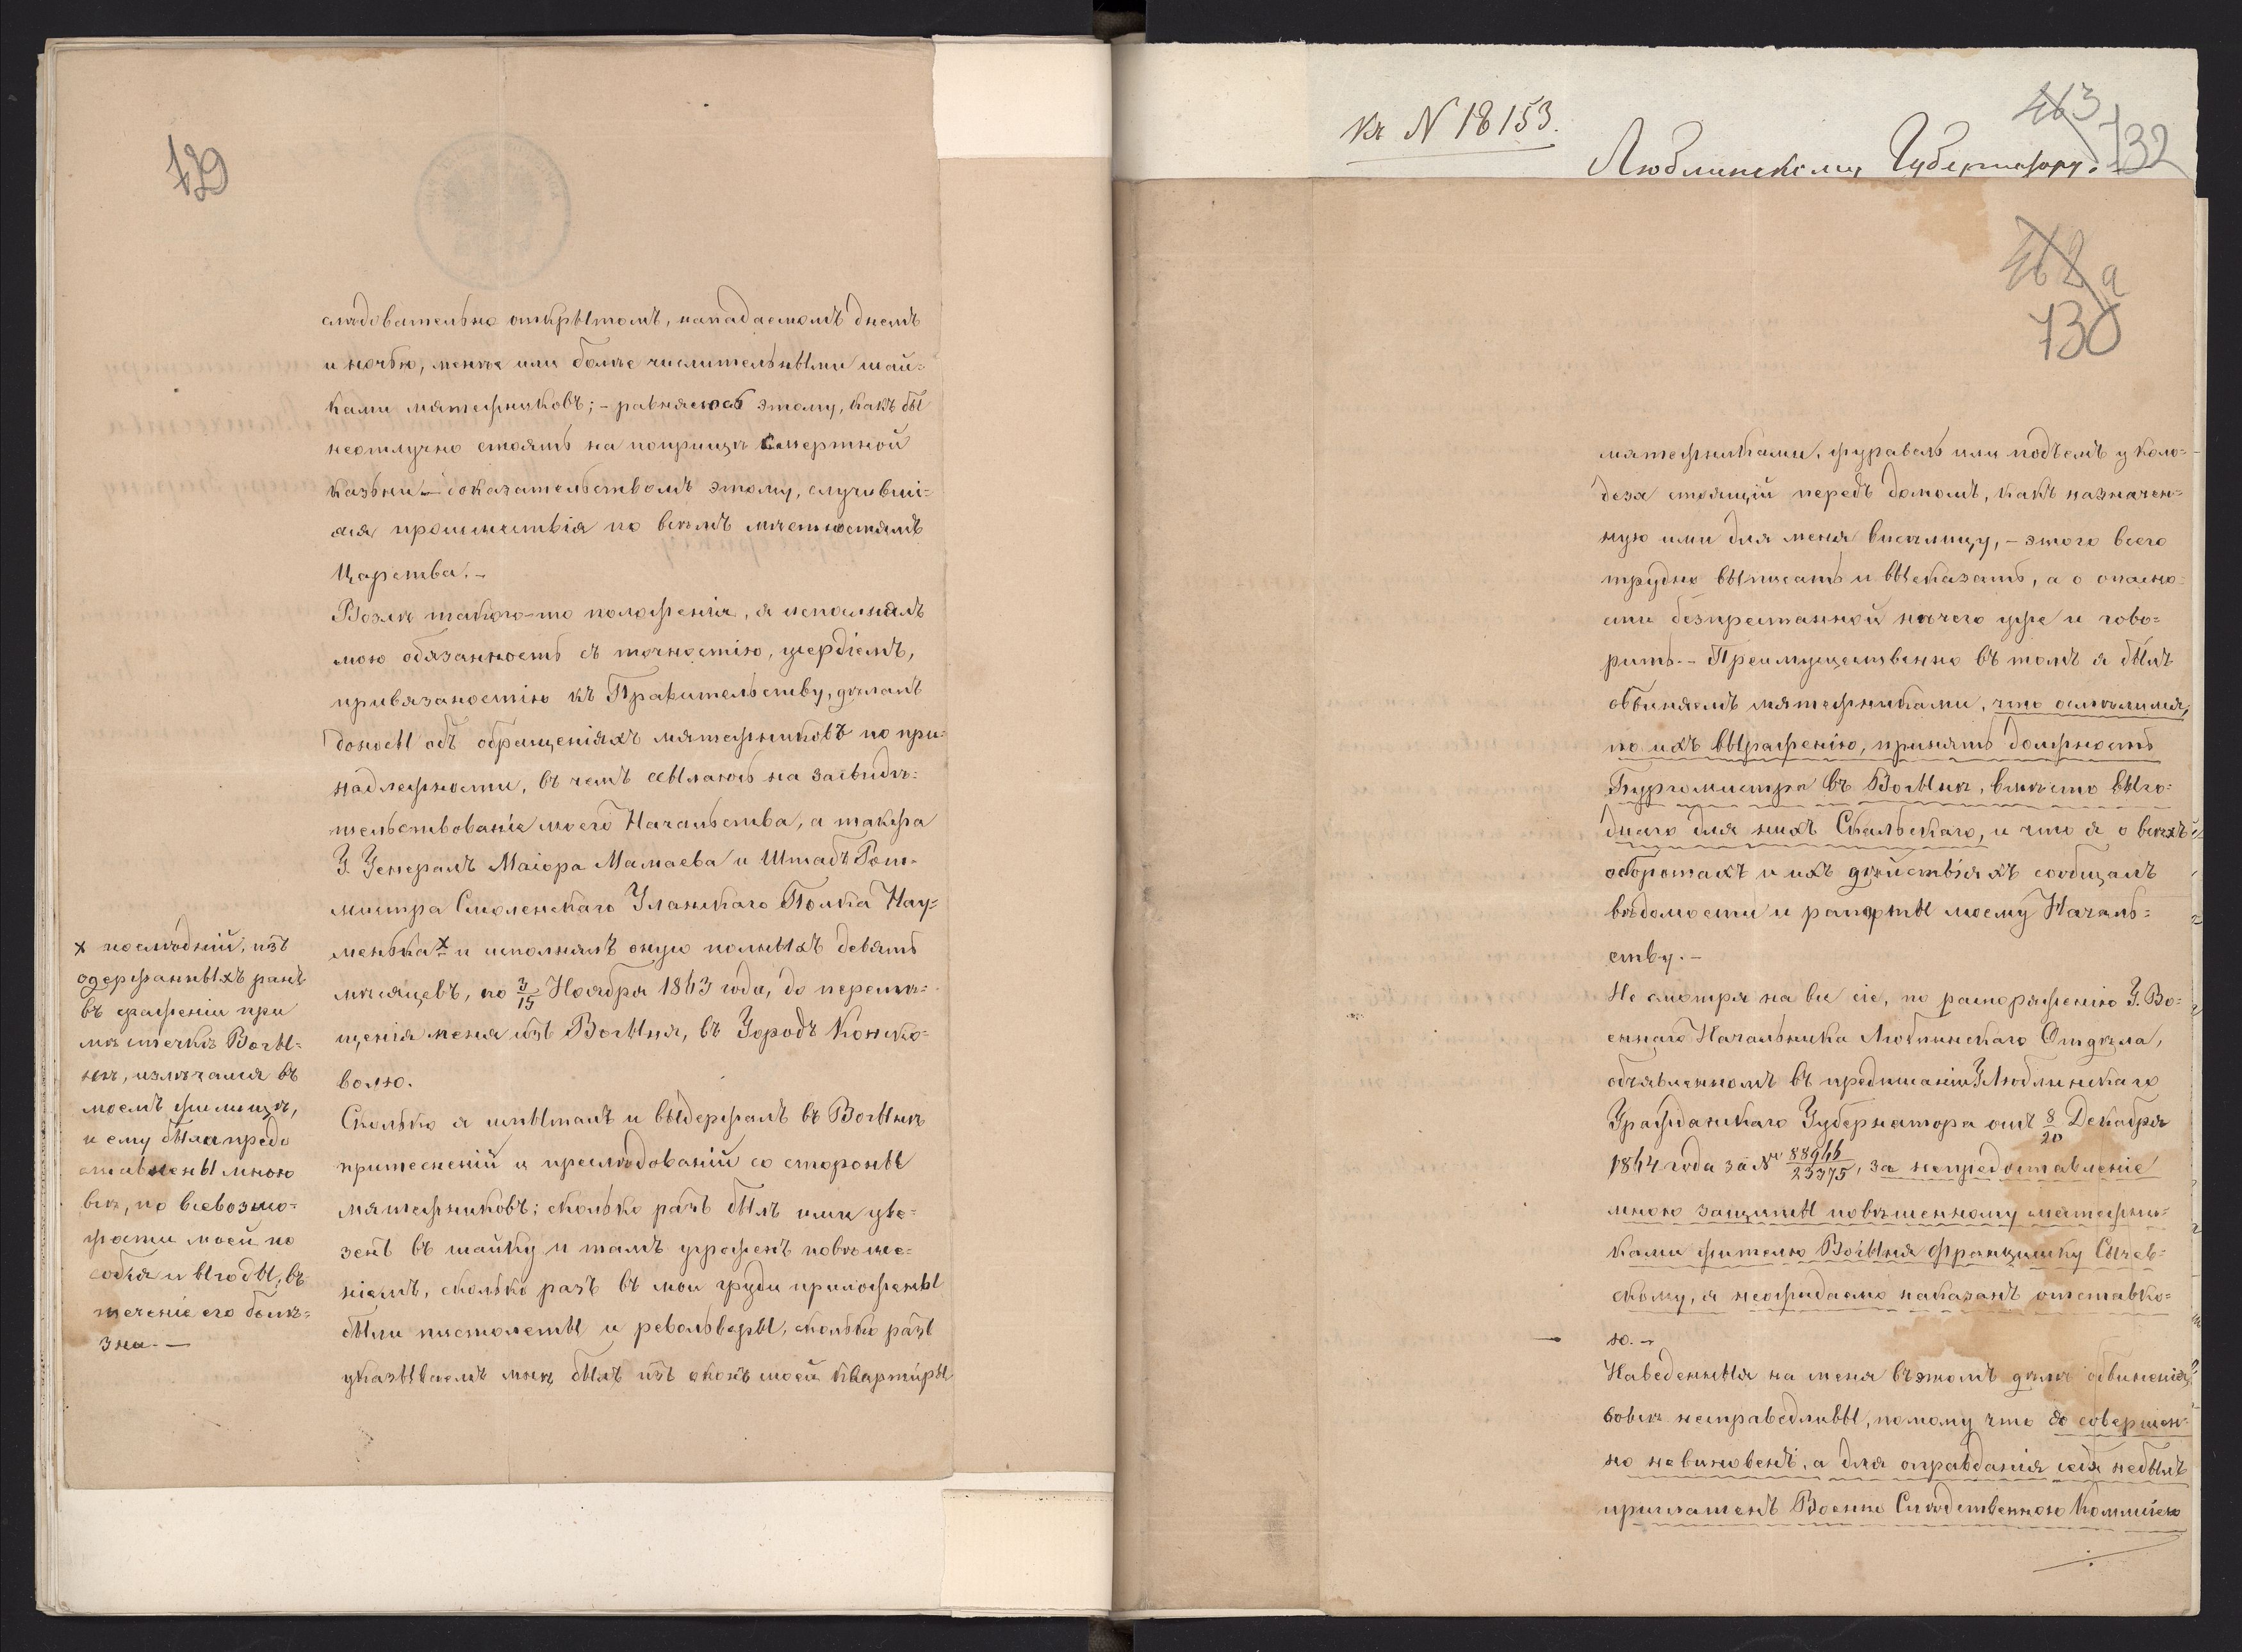 129
слѣдовательно открытомъ, нападаемомъ днемъ
и ночью, менѣе или болѣе числительными шай=
ками мятежниковъ; – равняюсь этому, какъ бы
неотлучно стоять на поприщѣ смертной
казни – доказательствомъ этому, случивші=
яся произшествія по всѣмъ мѣстностямъ
Царства. –
Возлѣ такого-то положенія, я исполнялъ
мою обязанность съ точностію, усердіемъ,
привязаностію къ Правительству, дѣлалъ
доносы объ обращеніяхъ мятежниковъ по при=
надлежности, въ чемъ ссылаюсь на засвидѣ=
тельствованіе моего Начальства, а также
Г. Генералъ Маіора Мамаева и Штабъ Рот=
мистра Смоленскаго Уланскаго Полка Нау=
менька х и исполнялъ оную полныхъ девять
мѣсяцевъ, по 3/15 Ноября 1863 года, до перемѣ=
щенія меня изъ Вогыня, въ Городъ Конско=
волю.
Сколько я испыталъ и выдержалъ въ Вогынѣ
притесненій и преслѣдованій со стороны
мятежниковъ; сколько разъ былъ ими уве=
зенъ въ шайку и тамъ угроженъ повѣше=
ніемъ, сколько разъ въ мои груди приложены
были пистолеты и револьверы, сколько разъ
указываемъ мнѣ былъ изъ оконъ моей квартиры
х послѣдній, изъ
одержанныхъ ранъ
въ сраженіи при
мѣстечкѣ Вогы=
нѣ, излѣчался въ
моемъ жилищѣ,
и ему были предо
ставлены мною
всѣ, по всевозмо=
жности моей по
собія и выгоды, въ
теченіе его болѣ=
зни. –
къ N 18153.
Люблинскому Губернатору.
463
132
462 a
130
мятежниками, журавель или подъемъ у коло=
дезя стоящій передъ домомъ, какъ назначен=
ную ими для меня висѣлицу, – этого всего
трудно выписать и высказать, а о опасно=
сти безпрестанной нѣчего уже и гово=
рить. – Преимущественно въ томъ я былъ
обвиняемъ мятежниками, что осмѣлился,
по ихъ выраженію, принять должность
Бургомистра въ Вогынѣ, вмѣсто выго=
днаго для нихъ Скальскаго, и что я о всѣхъ
оборотахъ и ихъ дѣйствіяхъ сообщалъ
вѣдомости и рапорты моему Началь=
ству. –
Не смотря на все сіе, по распоряженію Г. Во=
еннаго Начальника Люблинскаго Отдѣла,
объявленномъ въ предписаніи Г. Люблинскаго
Гражданскаго Губернатора отъ 8/20 Декабря
1864 года за № 88946/23375, за непредоставленіе
мною защиты повѣшенному мятежни=
ками жителю Вогыня Францишку Сычев=
скому, я неожидаемо наказанъ отставко=
ю. –
Наведенныя на меня въ этомъ дѣлѣ обвиненія,
вовсѣ несправедливы, потому что я совершен=
но невиновенъ, а для оправданія себя небылъ
приглашенъ Военно Слѣдственною Коммісіею